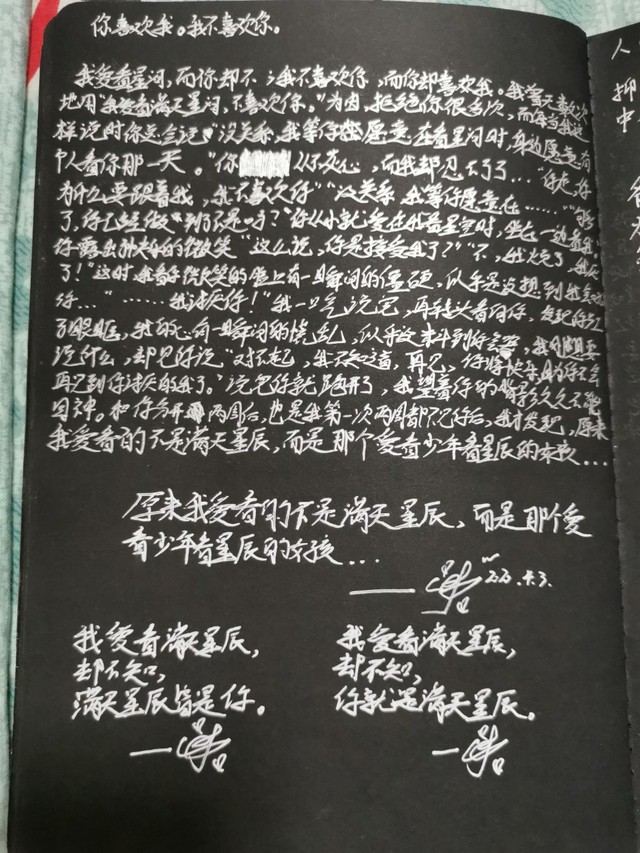 你喜欢我。我不喜欢你。
我爱看星河，而你却不；我不喜欢你，而你却喜欢我。我曾无数次
地用“我爱看满天星河，不喜欢你。”为由，拒绝你很多次，而每当我这
样说时你总会说“没关系，我等你愿意在看星河时，身的愿意有
个人看你那一天。”你 从不变心，而我却忍不了了…“你
为什么要跟着我，我不喜欢你”“没关系，我等你愿意在……”“够
了，你已经做到了不是吗？”你从小就爱在我看星空时，坐在一边看我。
你露出的微笑“这么说，你是接受我了？”“不，我烦了，我
了！”这时，我看你微笑的脸上有一瞬间的僵硬，似乎是没想到我
你…”“……我讨厌你！”我一口气说完，再转头看向你，发现你
了眼眶，我的心有一瞬间的慌乱，似乎没料到你会，我刚想要
说什么，却见你说“对不起，我不知道，再见，你将快乐的你不会
再见到你讨厌的我了。”说完你就跑开了，我望着你的背影久久不能
回神。和你分开两周后，也是我第一次两周都不见你后，我才发现，原来
我爱看的不是满天星辰，而是那个爱看少年看星辰的女孩…
原来我爱看的不是满天星辰，而是那个爱
看少年看星辰的女孩…
22.4.3.
我爱看满天星辰，
却不知，
满天星辰皆是你。
我爱看满天星辰，
却不知，
你就是满天星辰。
人
抑
中